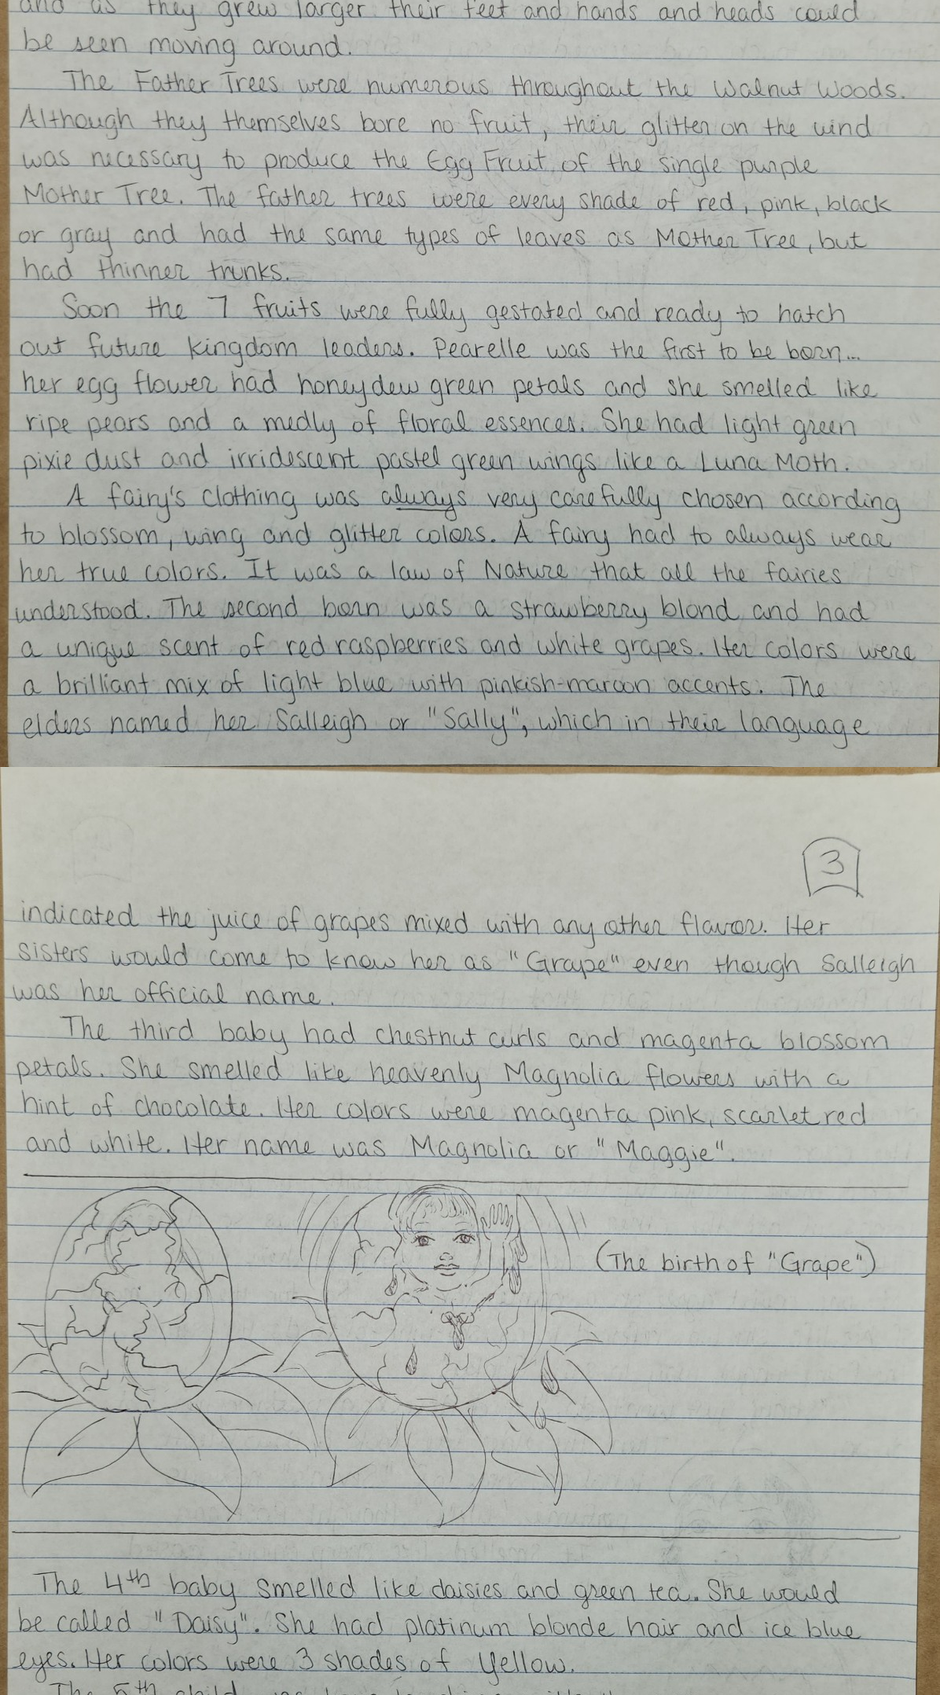 and as they grew larger their feet and hands and heads could
be seen moving around.
The Father Trees were numerous throughout the Walnut Woods.
Although they themselves bore no fruit, their glitter on the wind
was necessary to produce the Egg Fruit of the single purple
Mother Tree. The father trees were every shade of red, pink, black
or gray and had the same types of leaves as Mother Tree, but
had thinner trunks.
Soon the 7 fruits were fully gestated and ready to hatch
out future kingdom leaders. Pearelle was the first to be born...
her egg flower had honeydew green petals and she smelled like
ripe pears and a medly of floral essences. She had light green
pixie dust and irridescent pastel green wings like a Luna Moth.
A fairy's clothing was always very carefully chosen according
to blossom, wing and glitter colors. A fairy had to always wear
her true colors. It was a law of Nature that all the fairies
understood. The second born was a strawberry blond and had
a unique scent of red raspberries and white grapes. Her colors were
a brilliant mix of light blue with pinkish-maroon accents. The
elders named her Salleigh or "Sally", which in their language
3
indicated the juice of grapes mixed with any other flavor. Her
sisters would come to know her as "Grape" even though Salleigh
was her official name.
The third baby had chestnut curls and magenta blossom
petals. She smelled like heavenly Magnolia flowers with a
hint of chocolate. Her colors were magenta pink, scarlet red
and white. Her name was Magnolia or "Maggie".
(The birth of "Grape")
The 4th baby smelled like daisies and green tea. She would
be called "Daisy". She had platinum blonde hair and ice blue
eyes. Her colors were 3 shades of Yellow.
The 5th child